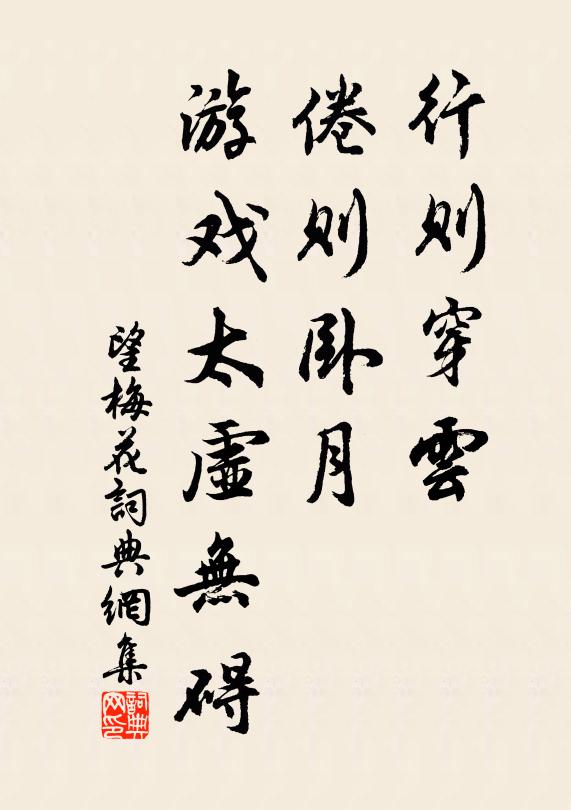 行则穿雲
倦则卧月
游戏太虚無碍
望梅花詞典網集
詞典网印